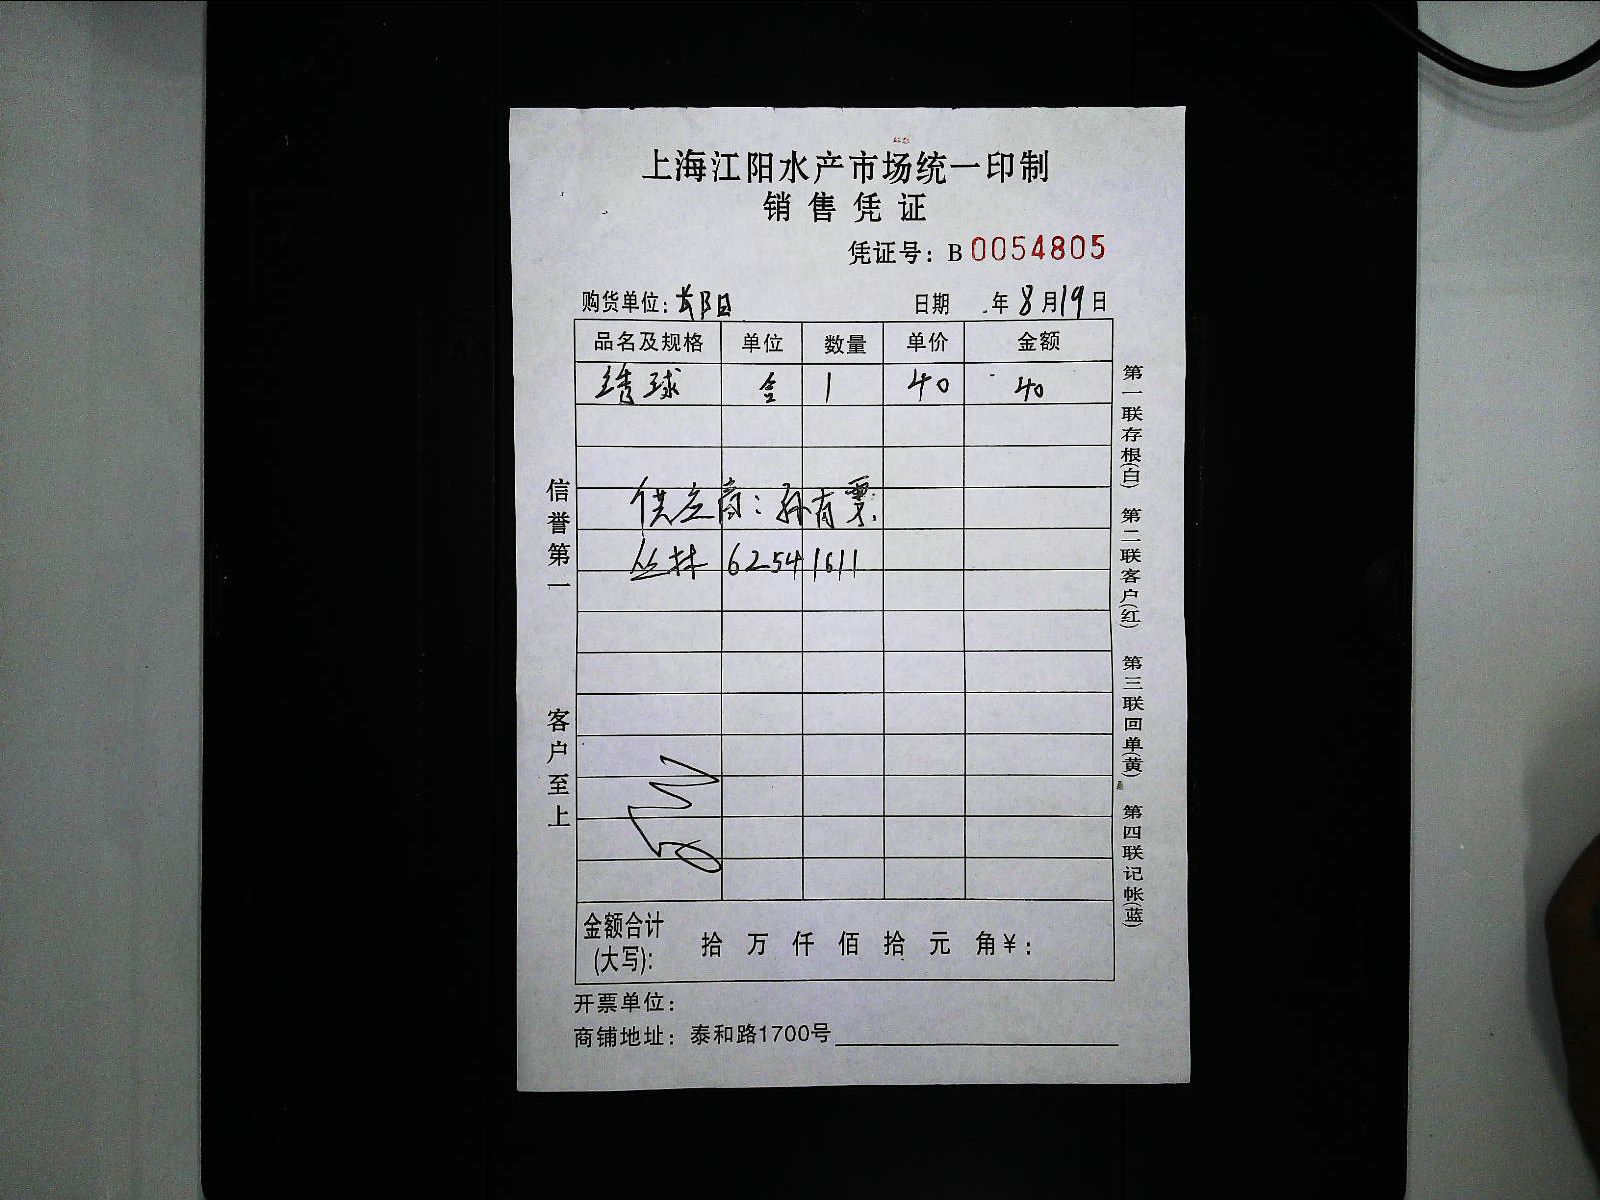 上海江阳水产市场统一印制
销售凭证
凭证号：B 0054805
购货单位：
日期 年 8 月 19 日
品名及规格 单位 数量 单价 金额
绣球 盒 1 40 40
供应商：孙有票
丛林 62541611
金额合计 (大写)： 拾 万 仟 佰 拾 元 角 ¥：
开票单位：
商铺地址：泰和路1700号
信誉第一 客户至上
第一联存根(白) 第二联客户(红) 第三联回单(黄) 第四联记帐(蓝)